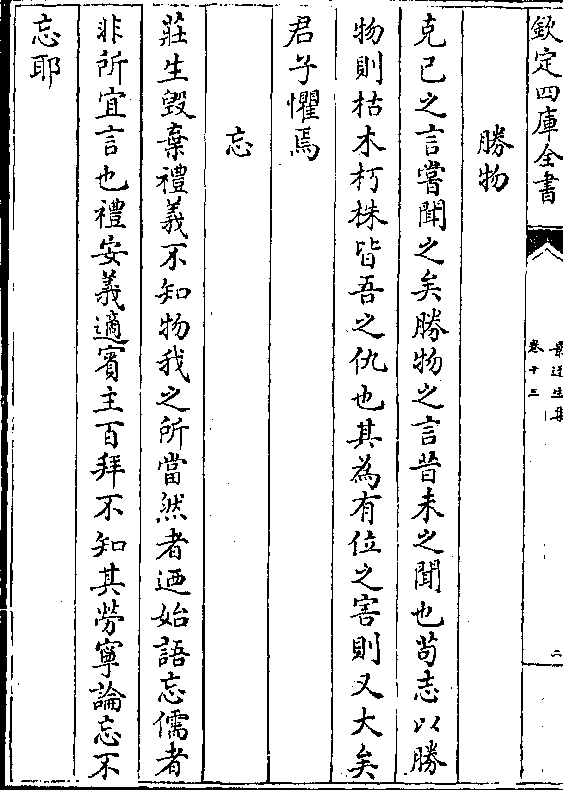 欽定四庫全書
景迂生集
卷十三
二
勝物
克已之言嘗聞之矣勝物之言昔未之聞也茍志以勝
物則枯木朽株皆吾之仇也其為有位之害則又大矣
君子懼焉
忘
莊生毀棄禮義不知物我之所當然者迺始語忘儒者
非所宜言也禮安義適賓主百拜不知其勞寧論忘不
忘耶